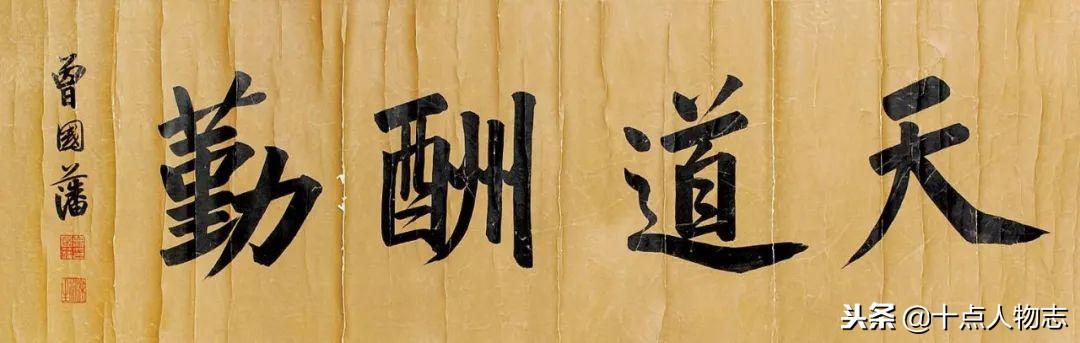 天道酬勤
曾國藩
头条 @十点人物志